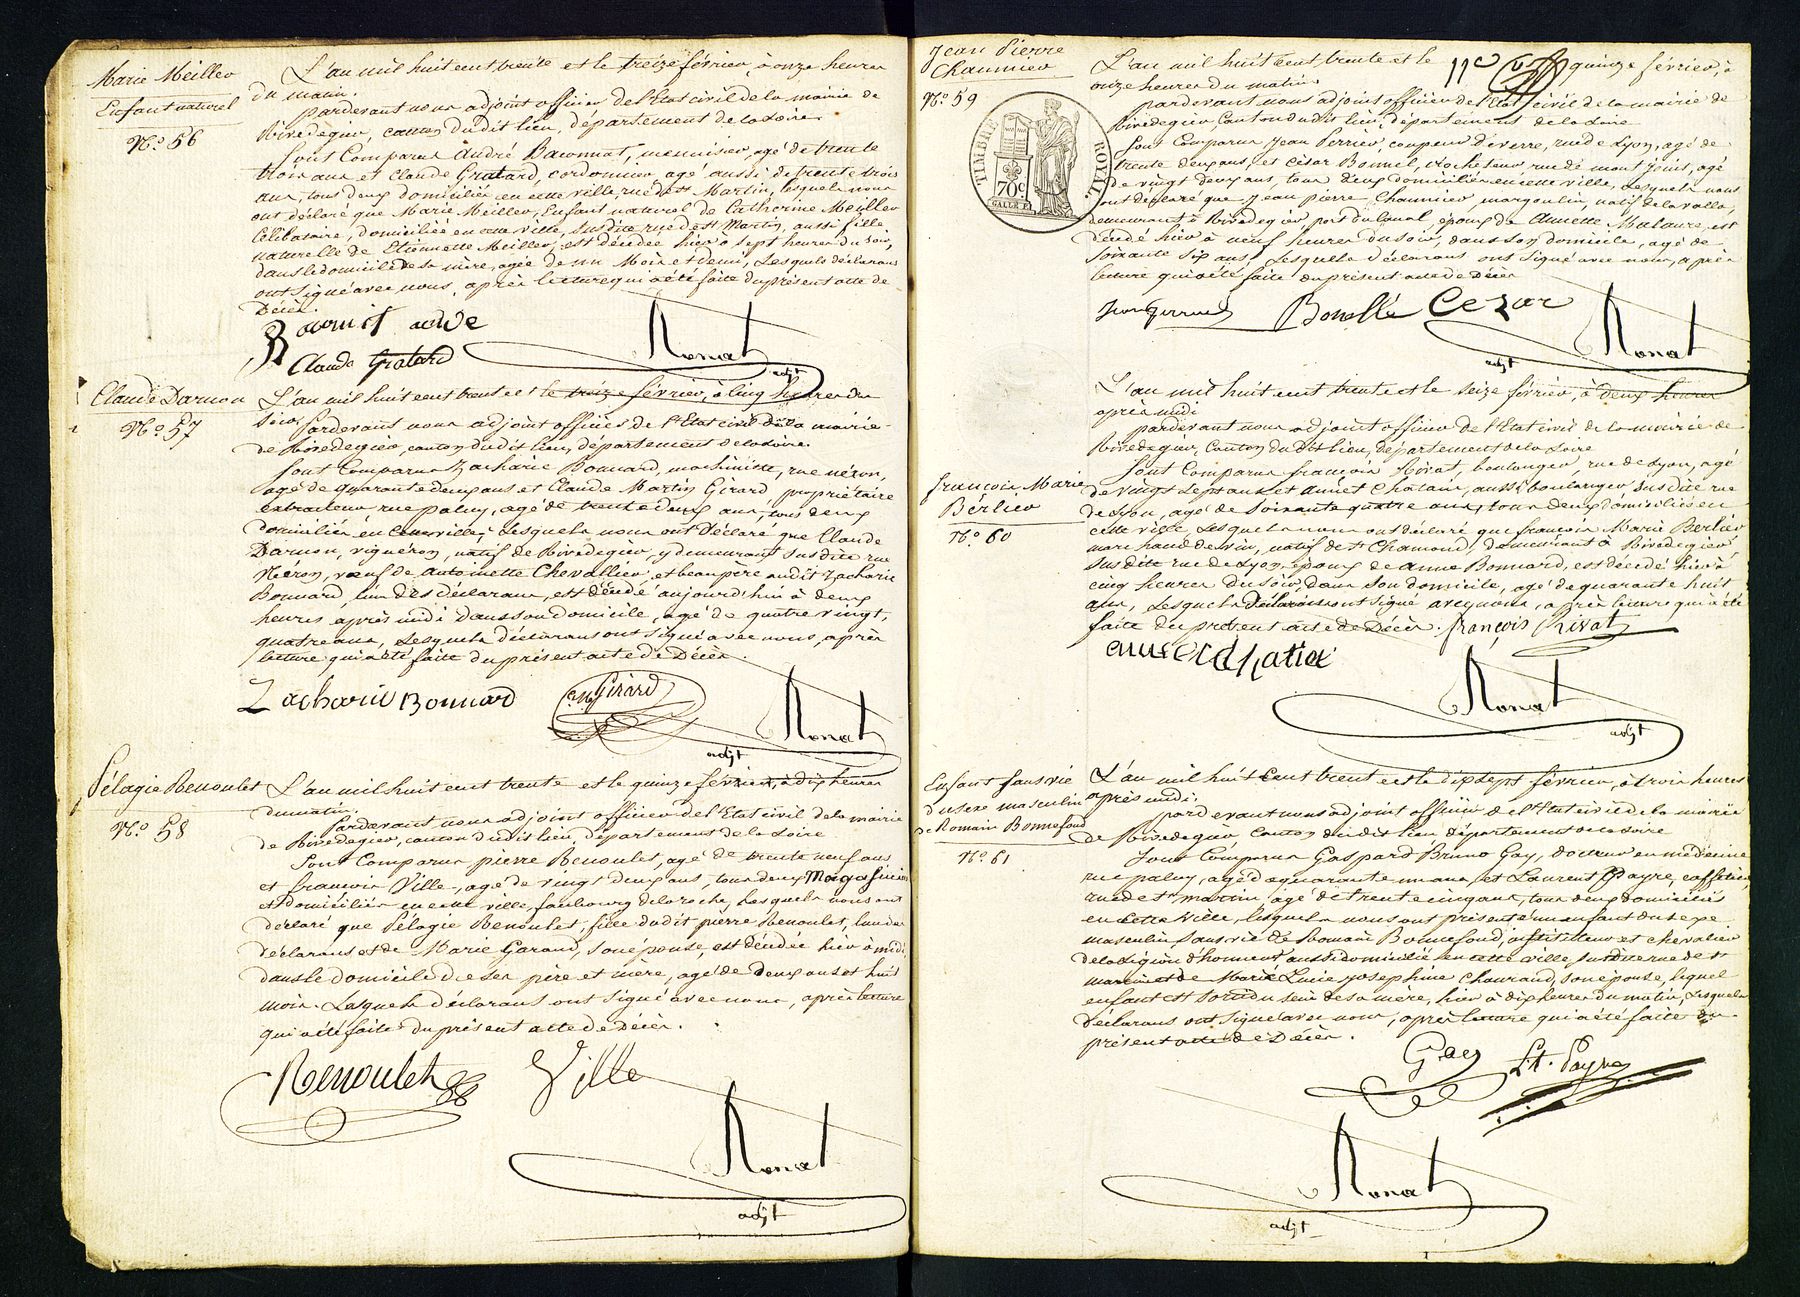 Marie Meiller
Enfant naturel
N.o 56
L'an mil huit cent trente et le treize février, à onze heures
du matin.
pardevant nous adjoint officier de l'Etat civil de la mairie de
Rivedegier, canton dudit lieu, département de la Loire
Sont Comparus André Baconnat, menuisier, agé de trente
trois ans et Claude Gratard, cordonnier, agé aussi de trente trois
ans, tous deux domiciliés en cette ville, rue de St Martin, lesquels nous
ont déclaré que Marie Meiller, Enfant naturel de Catherine Meiller
Célibataire, domiciliée en cette ville, susdite rue de St Martin, aussi fille
naturelle de Etiennette Meiller, est décédée hier à sept heures du soir,
dans le domicile de sa mère, agée de un Mois et demi, Lesquels déclarans
ont signé avec nous, après lecture qui a été faite du présent acte de
Décès.
Claude Gratard
Ronat
adjt
Claude Darnon
N.o 57
L'an mil huit cent trente et le treize février, à cinq heures du
soir pardevant nous adjoint officier de l'Etat civil de la mairie
de Rivedegier, canton dudit lieu, département de la Loire.
Sont Comparus Zacharie Bonnard, machiniste, rue néron,
agé de quarante deux ans et Claude Martin Girard, propriétaire
extracteur rue paluy, agé de trente deux ans, tous deux
domiciliés en cette ville, Lesquels nous ont Déclaré que Claude
Darnon, vigneron, natif de Rivedegier, y demeurant susdite rue
Néron, veuf de Antoinette Chevallier, et beau père audit Zacharie
Bonnard, l'un des déclarans, est décédé aujourd'hui à deux
heures après midi dans son domicile, agé de quatre vingt,
quatre ans, Lesquels déclarans ont signé avec nous, après
lecture qui a été faite du présent acte de Décès.
Zacharie Bonnard
C. M. Girard
Ronat
adjt
Pélagie Renoulet
N.o 58
L'an mil huit cent trente et le quinze février, à dix heures
du matin.
Pardevant nous adjoint officier de l'Etat civil de la mairie
de Rivedegier, canton dudit lieu, département de la Loire
Sont Comparus pierre Renoulet, agé de trente neuf ans
et francois Ville, agé de vingt deux ans, tous deux Magasiniers
et domiciliés en cette ville, faubourg delaroche, Lesquels nous ont
déclaré que Pélagie Renoulet, fille dudit pierre Renoulet, l'un des
déclarans et de Marie Garand, son épouse, est décédée hier à midi
dans le domicile de ses père et mère, agé de deux ans et huit
mois. Lesquels déclarans ont signé avec nous, après lecture
qui a été faite du présent acte de Décès.
Renoulet
Ville
Ronat
adjt
Jean Pierre
Chaumier
N.o 59
TIMBRE ROYAL.
70c
L'an mil huit cent trente et le quinze février, à
onze heures du matin
pardevant nous adjoint officier de l'Etat civil de la mairie de
Rivedegier, Canton dudit lieu, département de la Loire
Sont Comparus Jean Perrier, coupeur de verre, rue de Lyon, agé de
trente deux ans, et César Bonnel, crocheteur rue de mont Jouis, agé
de vingt deux ans, tous deux domiciliés en cette ville, Lesquels nous
ont déclaré que Jean pierre Chaumier, margoulin, natif de lavalla,
demeurant à Rivedegier, port du Canal, époux de Annette Malaure, est
décédé hier à neuf heures du soir, dans son domicile, agé de
soixante six ans, Lesquels déclarans ont signé avec nous, après
lecture qui a été faite du présent acte de Décès
Bonelle Cezar
Ronat
adjt
françois Marie
Bérlier
N.o 60
L'an mil huit cent trente et le seize février, à deux heures
après midi
pardevant nous adjoint officier de l'Etat civil de la mairie de
Rivedegier, Canton dudit lieu, département de la Loire
Sont Comparus françois Rivat, boulanger, rue de Lyon, agé
de vingt sept ans et Annet Chatain, aussi boulanger susdite rue
de Lyon, agé de soixante quatre ans, tous deux domiciliés en
cette ville, Lesquels nous ont déclaré que françois Marie Berlier
marchand de vin, natif de St Chamond, demeurant à Rivedegier
susdite rue de Lyon, époux de Anne Bonnard, est décédé hier à
cinq heures du soir, dans son domicile, agé de quarante huit
ans, Lesquels Déclarans ont signé avec nous, après lecture qui a été
faite du présent acte de Décès. françois Rivat
Ronat
adjt
Enfant sans vie
du sexe masculin
de Romain Bonnefond
N.o 61
L'an mil huit cent trent et le dix sept février, à trois heures
après midi.
pardevant nous adjoint officier de l'Etat civil de la mairie
de Rivedegier, Canton dudit lieu département de la Loire
Sont Comparus Gaspard Bruno Gay, docteur en médecine
rue paluy, agé de quarante un ans, et Laurent Payre, caffetier,
rue de St martin, agé de trente cinq ans, tous deux domiciliés
en cette ville, lesquels nous ont présenté un enfant du sexe
masculin sans vie de Romain Bonnefond, instituteur et chevalier
de la Légion d'honneur aussi domicilié en cette ville, susdite rue de St
martin et de Marie Lucie josephine Chaurand, son épouse, lequel
enfant est sorti du sein de sa mère, hier à dix heures du matin, Lesquels
déclarans ont signé avec nous, après lecture qui a été faite du
présent acte de Décès.
Gay
Lt. Payre
Ronat
adjt